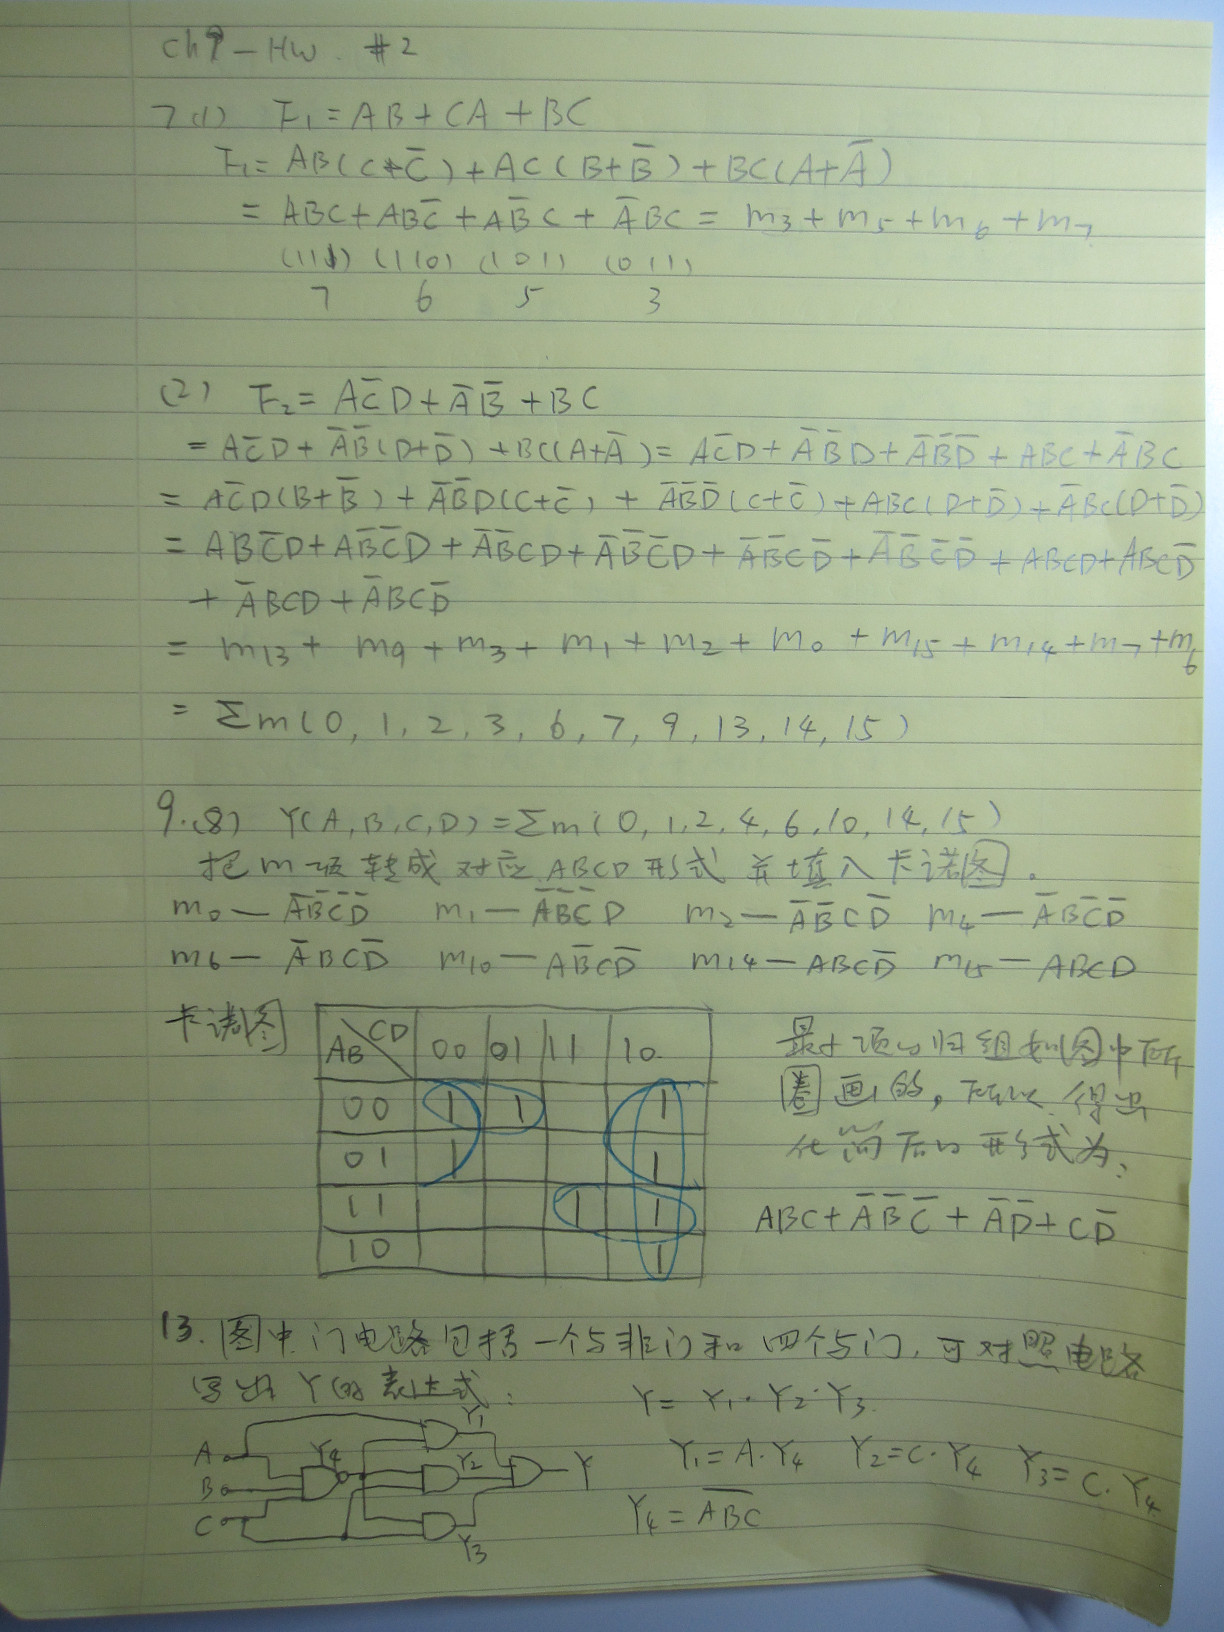 Ch9 - HW. #2
7(1) F₁ = AB + CA + BC
F₁ = AB(C+C̅) + AC(B+B̅) + BC(A+A̅)
= ABC + ABC̅ + AB̅C + A̅BC = m₃ + m₅ + m₆ + m₇
(111) (110) (101) (011)
7 6 5 3
(2) F₂ = AC̅D + A̅B̅ + BC
= AC̅D + A̅B̅(D+D̅) + BC(A+A̅) = AC̅D + A̅B̅D + A̅B̅D̅ + ABC + A̅BC
= AC̅D(B+B̅) + A̅B̅D(C+C̅) + A̅B̅D̅(C+C̅) + ABC(D+D̅) + A̅BC(D+D̅)
= ABC̅D + AB̅C̅D + A̅B̅CD + A̅B̅C̅D + A̅B̅CD̅ + A̅B̅C̅D̅ + ABCD + ABCD̅
+ A̅BCD + A̅BCD̅
= m₁₃ + m₉ + m₃ + m₁ + m₂ + m₀ + m₁₅ + m₁₄ + m₇ + m₆
= Σm(0, 1, 2, 3, 6, 7, 9, 13, 14, 15)
9.(8) Y(A,B,C,D) = Σm(0, 1, 2, 4, 6, 10, 14, 15)
把m项转成对应ABCD形式并填入卡诺图.
m₀ — A̅B̅C̅D̅ m₁ — A̅B̅C̅D m₂ — A̅B̅CD̅ m₄ — A̅BC̅D̅
m₆ — A̅BCD̅ m₁₀ — AB̅CD̅ m₁₄ — ABCD̅ m₁₅ — ABCD
卡诺图
AB CD 00 01 11 10
00 1 1 1
01 1 1
11 1 1
10 1
最小项的归组如图中所
圈画的，所以得出
化简后的形式为:
ABC + A̅B̅C̅ + A̅D̅ + CD̅
13. 图中门电路包括一个与非门和四个与门，可对照电路
写出Y的表达式:
Y = Y₁·Y₂·Y₃.
A B C Y₄ Y₁ Y₂ Y₃ Y
Y₁ = A·Y₄ Y₂ = C·Y₄ Y₃ = C·Y₄
Y₄ = A̅B̅C̅